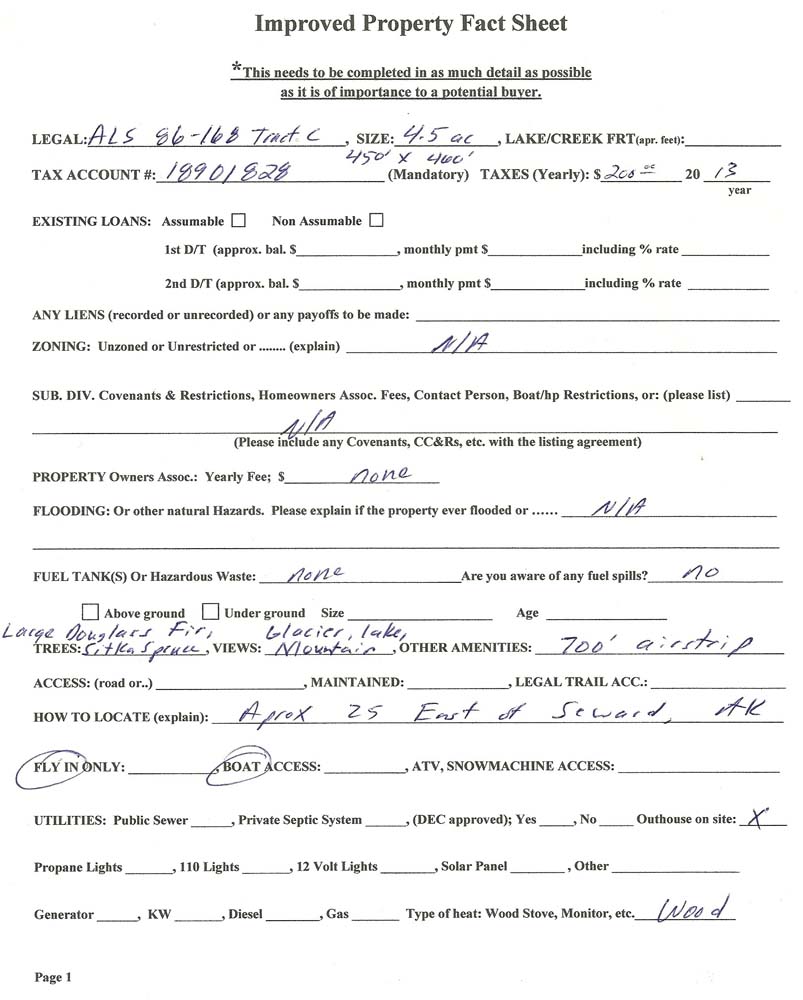 Improved Property Fact Sheet
*This needs to be completed in as much detail as possible
as it is of importance to a potential buyer.
LEGAL: ALS 86-168 Tract C, SIZE: 4.5 ac, LAKE/CREEK FRT(apr. feet):
450' X 460'
TAX ACCOUNT #: 18901828 (Mandatory) TAXES (Yearly): $ 200 00 20 13
year
EXISTING LOANS: Assumable ☐ Non Assumable ☐
1st D/T (approx. bal. $____, monthly pmt $____including % rate ____
2nd D/T (approx. bal. $____, monthly pmt $____including % rate ____
ANY LIENS (recorded or unrecorded) or any payoffs to be made: ____
ZONING: Unzoned or Unrestricted or ........ (explain) N/A
SUB. DIV. Covenants & Restrictions, Homeowners Assoc. Fees, Contact Person, Boat/hp Restrictions, or: (please list) ____
N/A
(Please include any Covenants, CC&Rs, etc. with the listing agreement)
PROPERTY Owners Assoc.: Yearly Fee; $ none
FLOODING: Or other natural Hazards. Please explain if the property ever flooded or ...... N/A
FUEL TANK(S) Or Hazardous Waste: none Are you aware of any fuel spills? no
☐ Above ground ☐ Under ground Size ____ Age ____
Large Douglass Fir, Glacier, lake,
TREES: Sitka Spruce, VIEWS: Mountain, OTHER AMENITIES: 700' airstrip
ACCESS: (road or..) ____, MAINTAINED: ____, LEGAL TRAIL ACC.: ____
HOW TO LOCATE (explain): Aprox 25 East of Seward, AK
FLY IN ONLY: ____, BOAT ACCESS: ____, ATV, SNOWMACHINE ACCESS: ____
UTILITIES: Public Sewer ____, Private Septic System ____, (DEC approved); Yes ____, No ____ Outhouse on site: X
Propane Lights ____, 110 Lights ____, 12 Volt Lights ____, Solar Panel ____, Other ____
Generator ____, KW ____, Diesel ____, Gas ____ Type of heat: Wood Stove, Monitor, etc. Wood
Page 1